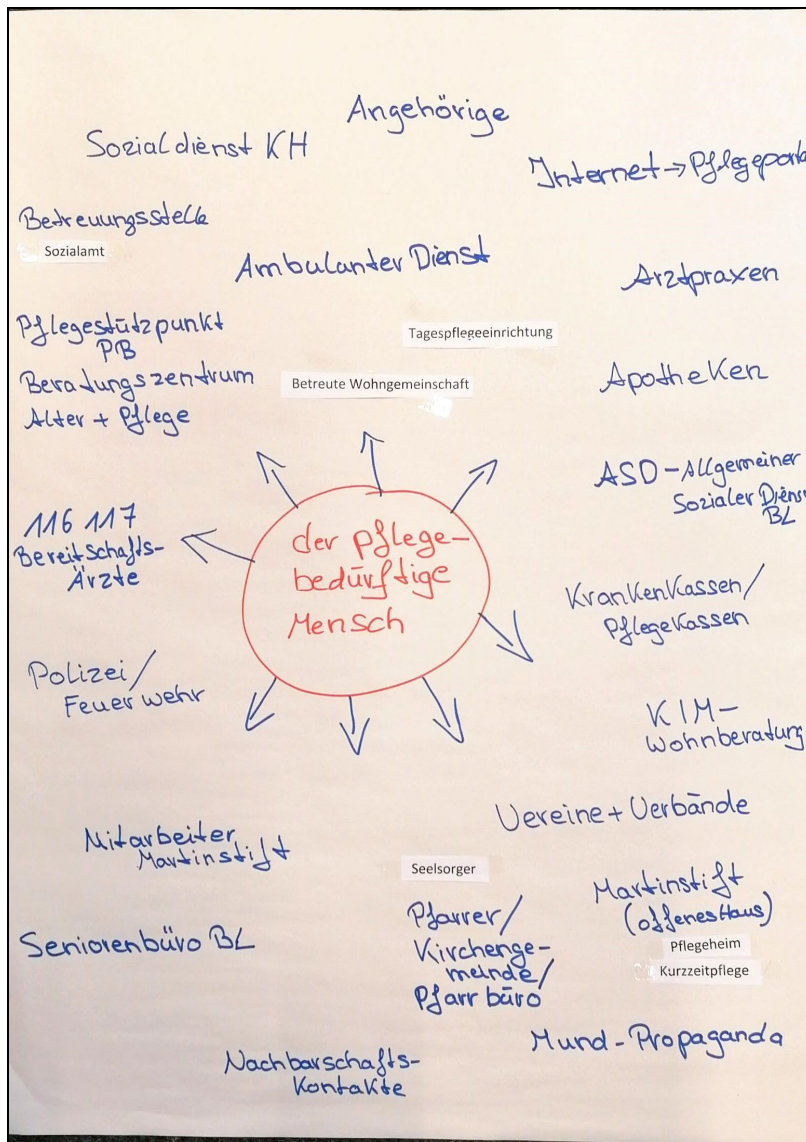 Angehörige
Sozialdienst KH
Internet → Pflegeporta
Betreuungsstelle
Sozialamt
Ambulanter Dienst
Arztpraxen
Pflegestützpunkt
PB
Beratungszentrum
Alter + Pflege
Tagespflegeeinrichtung
Betreute Wohngemeinschaft
Apotheken
ASD - Allgemeiner
Sozialer Diens
BL
116 117
Bereitschafts-
Ärzte
der pflege-
bedürftige
Mensch
Krankenkassen/
Pflegekassen
Polizei/
Feuerwehr
KIM-
Wohnberatung
Vereine + Verbände
Mitarbeiter
Martinstift
Seelsorger
Pfarrer/
Kirchenge-
meinde/
Pfarrbüro
Martinstift
(offenes Haus)
Pflegeheim
Kurzzeitpflege
Seniorenbüro BL
Mund-Propaganda
Nachbarschafts-
Kontakte